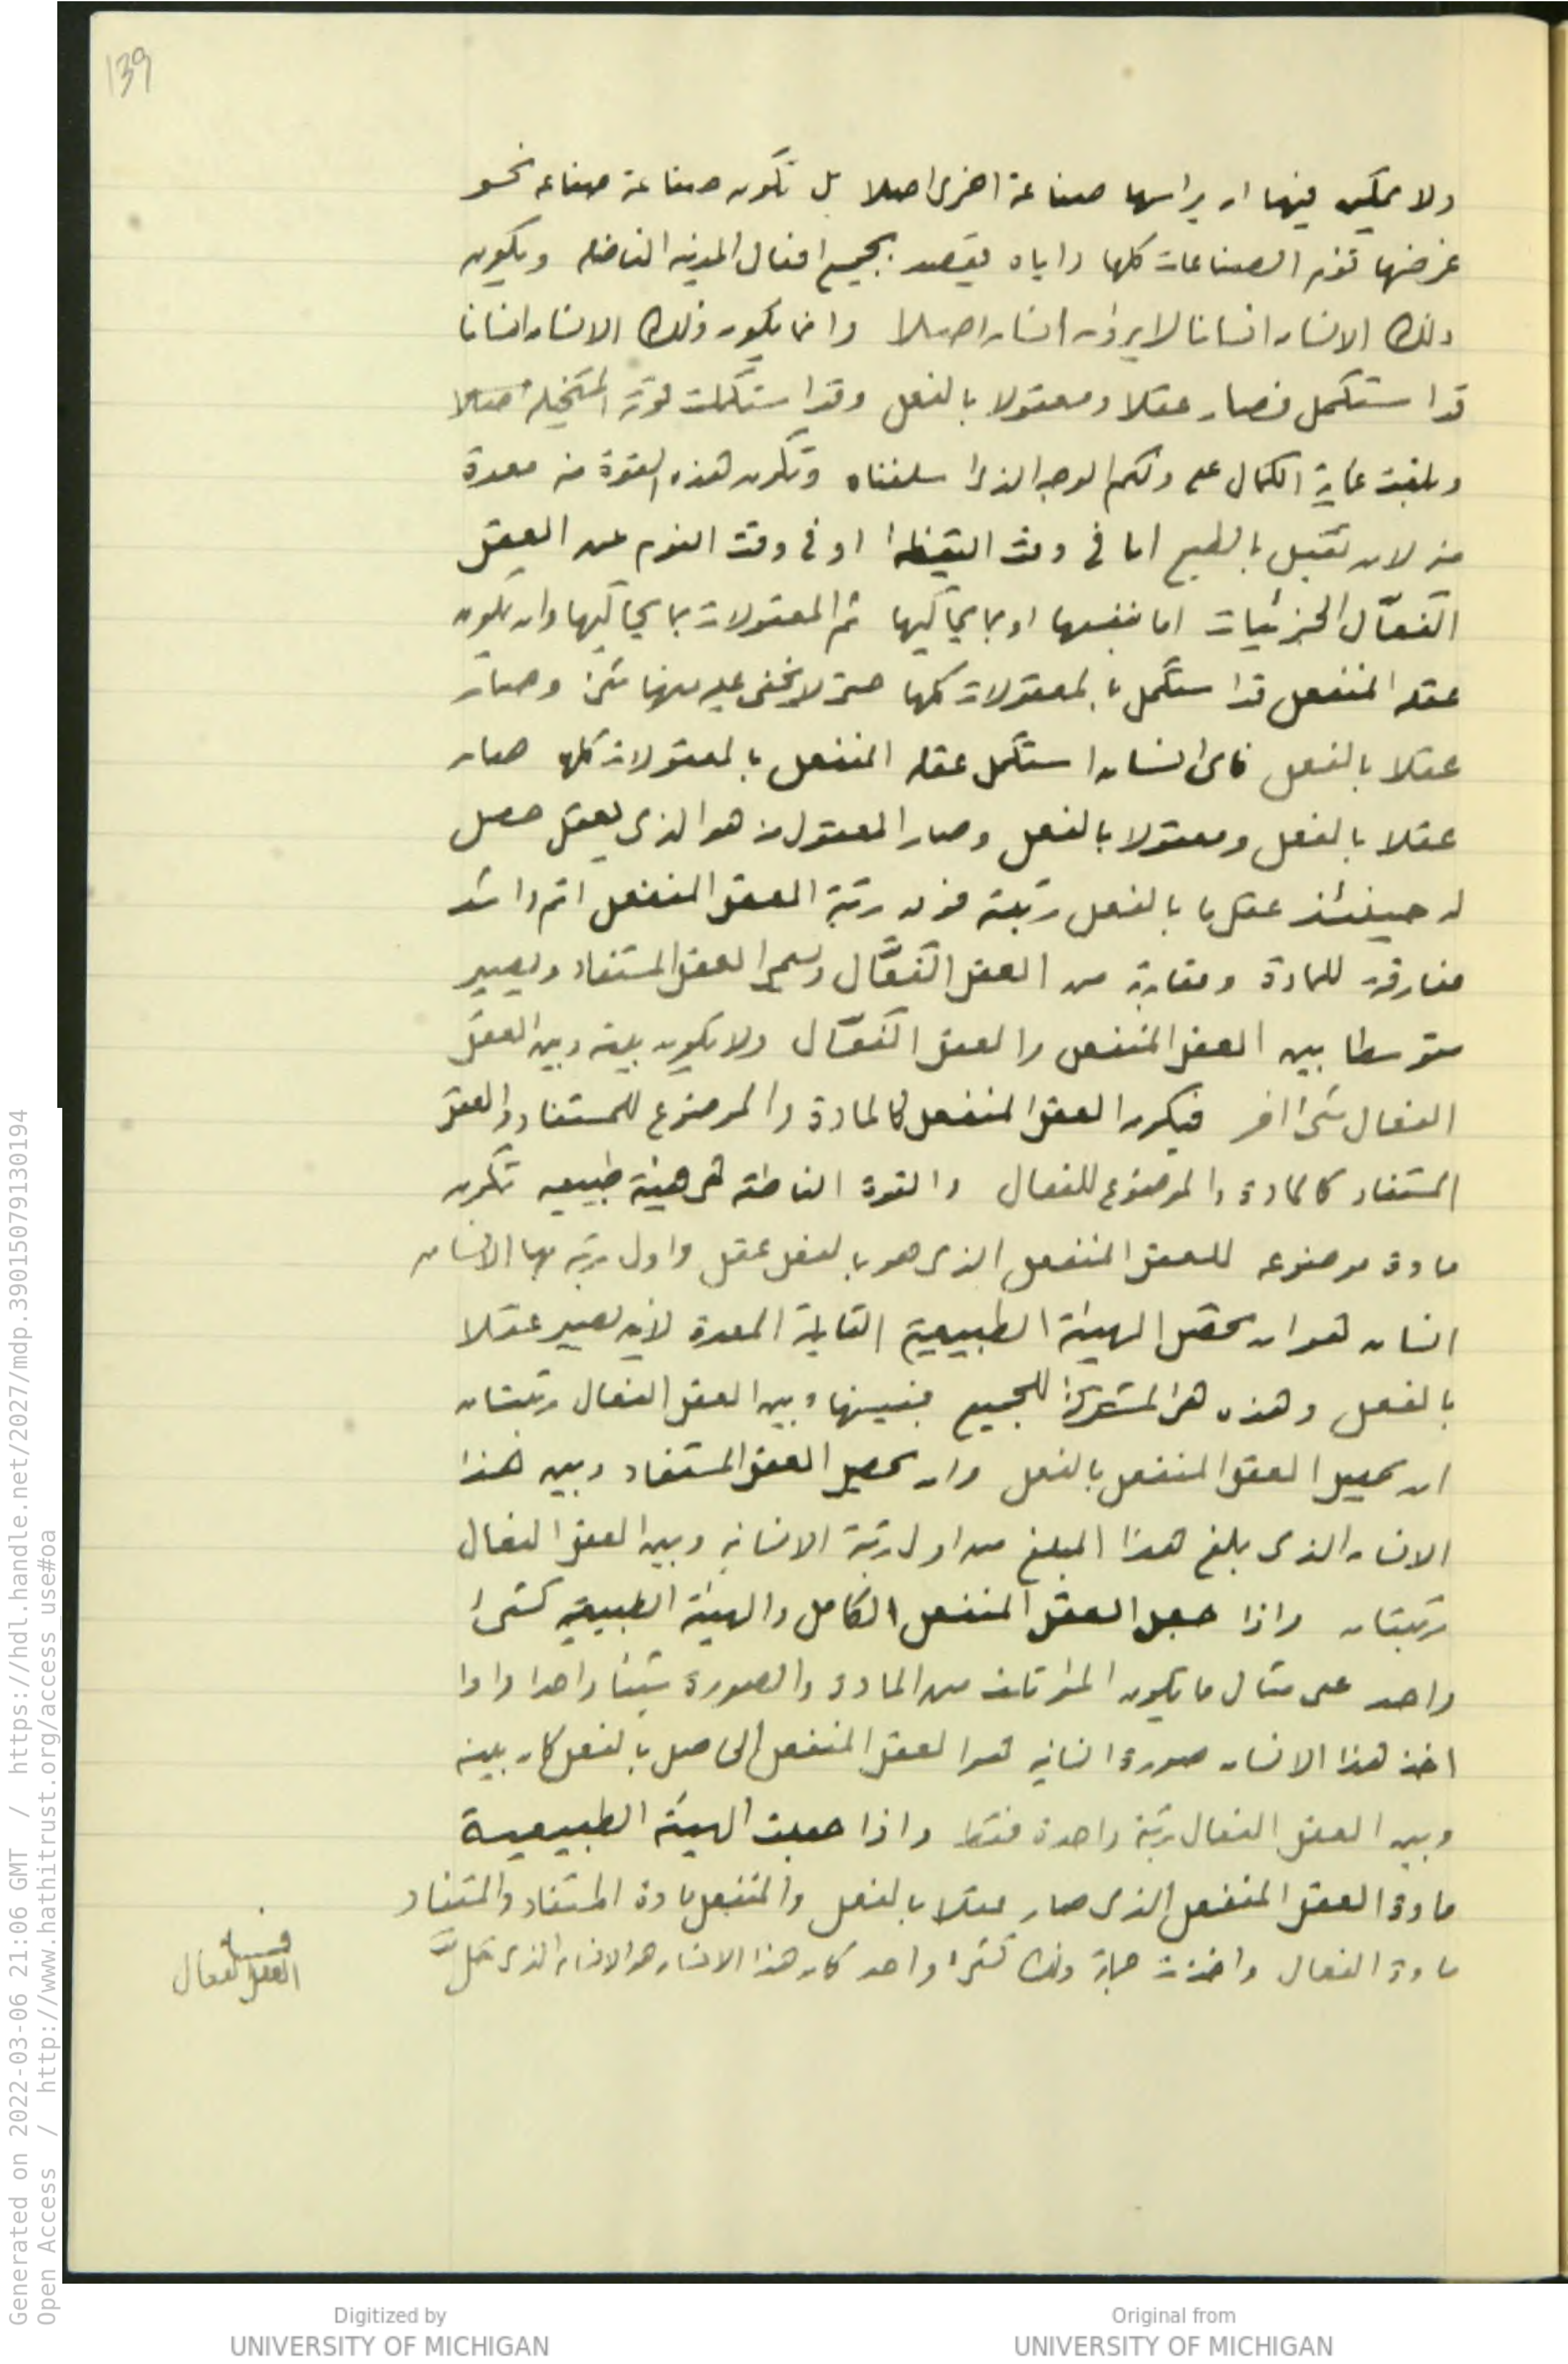 139
ولا يمكن فيها ان يراسها صناعة اخرى اصلا بل تكون صناعة صناعه نحو
غرضها تؤم الصناعات كلها واياه يقصد بجميع افعال المدينه الفاضله ويكون
ذلك الانسان انسانا لا يراسه انسان اصلا وانما يكون ذلك الانسان انسانا
قد استكمل فصار عقلا ومعقولا بالفعل وقد استكملت قوته المتخيله
وبلغت غاية الكمال على ذلكم الوجه الذى اسلفناه وتكون هذه القوة منه معدة
منه لان تقبل بالطبع اما فى وقت اليقظة او فى وقت النوم عن العقل
الفعّال الجزئيات اما بنفسها او بما يحاكيها ثم المعقولات بما يحاكيها وان يكون
عقله المنفعل قد استكمل بالمعقولات كلها حتى لا يخفى عليه منها شئ وصار
عقلا بالفعل فاى انسان استكمل عقله المنفعل بالمعقولات كلها صار
عقلا بالفعل ومعقولا بالفعل وصار المعقول منه هو الذى يعقل حصل
له حينئذ عقل ما بالفعل رتبته فوق رتبة العقل المنفعل اتم واشد
مفارقة للمادة ومقاربة من العقل الفعّال ويسمى العقل المستفاد ويصير
متوسطا بين العقل المنفعل والعقل الفعّال ولا يكون بينه وبين العقل
الفعال شئ اخر فيكون العقل المنفعل كالمادة والموضوع للمستفاد والعقل
المستفاد كالمادة والموضوع للفعال والقوة الناطقه هى هيئة طبيعيه تكون
مادة موضوعه للعقل المنفعل الذى هو بالفعل عقل واول رتبه بها الانسان
انسان هو ان تحصل الهيئة الطبيعية القابلة المعدة لان يصير عقلا
بالفعل وهذه هى المشتركة للجميع فبينها وبين العقل الفعال رتبتان
ان يحصل العقل المنفعل بالفعل وان يحصل العقل المستفاد وبين هذا
الانسان الذى بلغ هذا المبلغ من اول رتبة الانسانيه وبين العقل الفعال
رتبتان واذا جعل العقل المنفعل الكامل والهيئة الطبيعية كشئ
واحد على مثال ما يكون المؤتلف من المادة والصورة شيئا واحدا واذا
اخذ هذا الانسان صورة انسانيه هو العقل المنفعل الحاصل بالفعل كان بينه
وبين العقل الفعال رتبة واحدة فقط واذا جعلت الهيئة الطبيعية
مادة العقل المنفعل الذى صار عقلا بالفعل والمنفعل مادة المستفاد والمستفاد
مادة الفعال واخذت جملة ذلك كشئ واحد كان هذا الانسان هو الانسان الذى حَلَّ
فيه
العقل الفعال
Generated on 2022-03-06 21:06 GMT / https://hdl.handle.net/2027/mdp.39015079130194
Open Access / http://www.hathitrust.org/access_use#oa
Digitized by
UNIVERSITY OF MICHIGAN
Original from
UNIVERSITY OF MICHIGAN